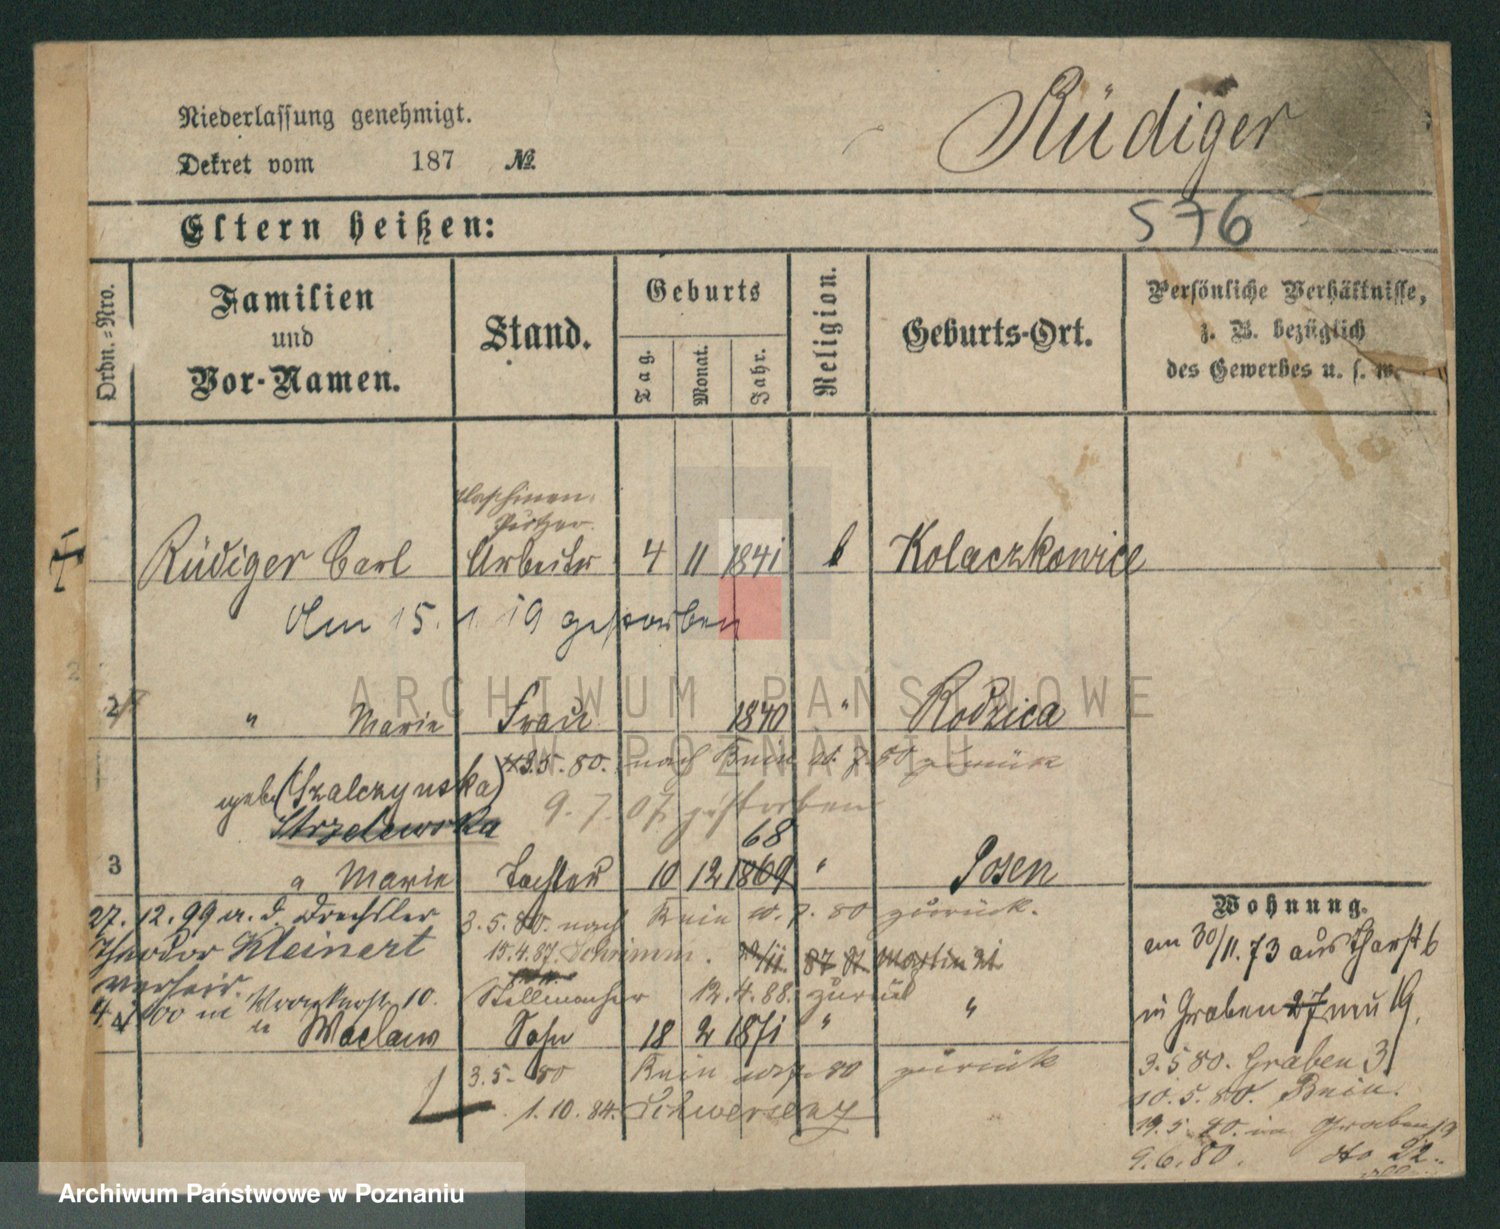 Niederlassung genehmigt.
Dekret vom 187 №
Rüdiger
576
Eltern heißen:
Ordn.=Nro.
Familien
und
Vor-Namen.
Stand.
Geburts
Tag.
Monat.
Jahr.
Religion.
Geburts-Ort.
Persönliche Verhältnisse,
z. B. bezüglich
des Gewerbes u. s. w.
Maschinen-
Putzer
Rüdiger Carl Arbeiter 4 11 1841 Kolaczkowice
Am 15. 1. 19 gestorben
2 " Marie Frau 1840 " Rodzica
3.5.80. nach Bnin 10. 7. 80 zurück
geb. (Szalczynska)
Strzelewska
9. 7. 07 gestorben
68
3 Marie Tochter 10 12 1869 " Posen
27. 12. 99 a. d. Drechsler
Theodor Kleinert
verheir.
3.5.80. nach Bnin 10. 7. 80 zurück.
15.4.87. Schrimm. 87 St Martin 21
Stellmacher 12. 4. 88. zurück
4 Waclaw Sohn 18 2 1871 " "
3. 5. 80 Bnin 80 zurück
1. 10. 84. Schwersenz
Wohnung.
am 30/11.73 aus Thorst 6
in Graben 27 nru 19.
3.5 80. Graben 3
10. 5. 80. Bnin.
19. 5. 80. in Graben 19
9. 6. 80. dto 22.
ARCHIWUM PAŃSTWOWE
W POZNANIU
Archiwum Państwowe w Poznaniu